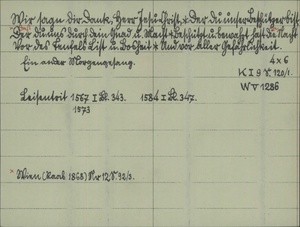 Wir sagn dir Dank, Herr Jesu Christ, x Der du unser Beschützer bist
Der du uns durch dein Gnad u. Macht x Beschützt u. bewahrt hast die Nacht
Vor des Teufels List u. Bosheit x Und vor aller Gefährlichkeit.
Ein ander Morgengesang.
4 x 6
K I 9 V. 120/1.
W V 1286
Leisentrit 1567 I Bl. 343. 1584 I Bl. 347.
1573
x Wien (Raab 1868) Nr 12 V. 92/3.